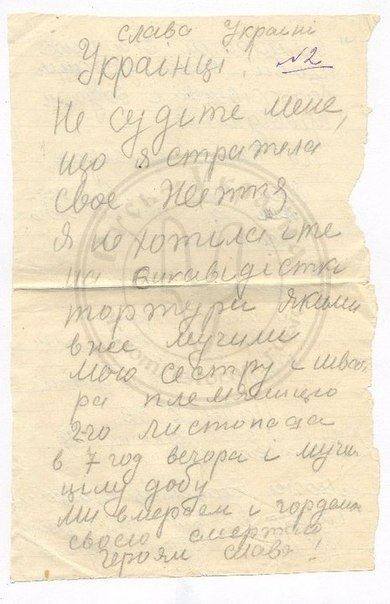 слава Україні
Українці!
№2
Не судіте мене,
що я стратела
своє життя
Я не хотіла іте
на енкаведісткі
тортури якими
вние мучили
мою сестру і шваг
ра племяницю
2го листопада
в 7 год вечора і мучи
цілу добу
Ми вмерем і гордом
своєю смертю
героям слава!